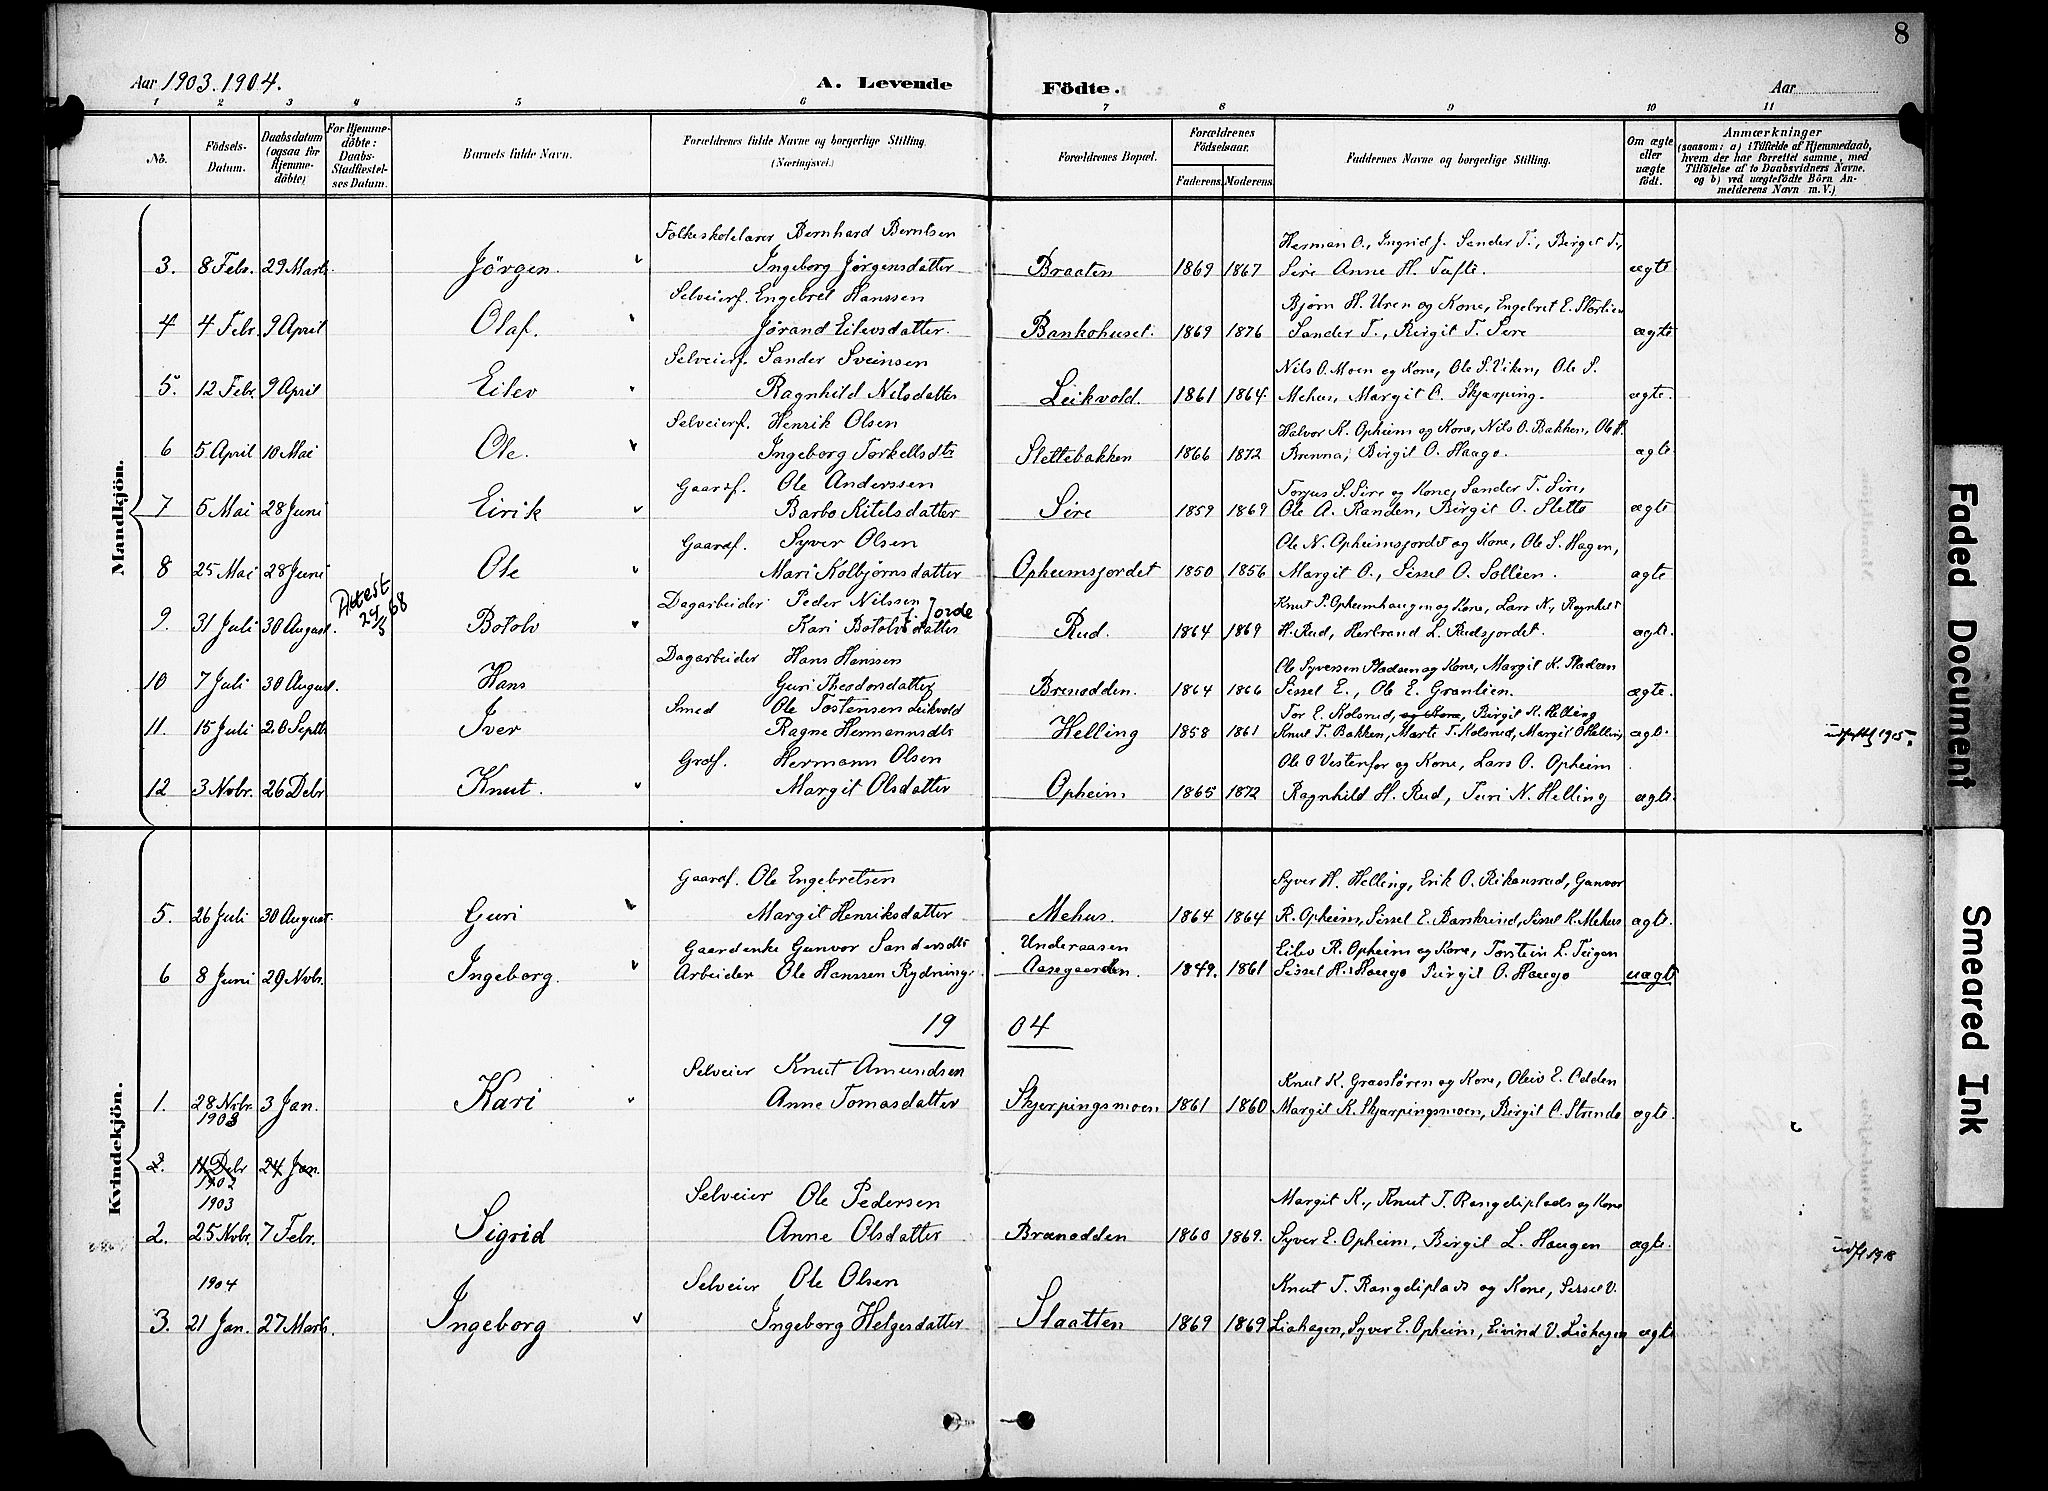 8
Aar 1903. 1904.
A. Levende Födte.
Aar
1 2 3 4 5 6 7 8 9 10 11
No.
Födsels-Datum.
Daabsdatum (ogsaa for Hjemme-döbte)
For Hjemme-döbte: Daabs-Stadfæstel-ses Datum.
Barnets fulde Navn.
Forældrenes fulde Navne og borgerlige Stilling. (Næringsvei.)
Forældrenes Bopæl.
Forældrenes Födselsaar.
Faderens. Moderens.
Faddernes Navne og borgerlige Stilling.
Om ægte eller uægte födt.
Anmærkninger
(saasom: a) i Tilfælde af Hjemmedaab, hvem der har forrettet samme, med Tilföielse af to Daabsvidners Navne, og b) ved uægtefödte Börn An-melderens Navn m. V.)
Mandkjön.
Folkeskolelærer Bernhard Berntsen
Herman O., Ingrid J. Sander T., Birget T.,
3. 8 Febr. 29 Marts. Jörgen. Ingeborg Jörgensdatter Braaten 1869 1867 Sire Anne H. Tufte. ægte
Selveierf. Engebret Hanssen
Bjørn H. Uren og Kone, Engebret E. Störlien
4 4 Febr. 9 April Olaf. Jørand Eilevsdatter. Bankohuset. 1869 1876 Sander T., Birgit T. Sire ægte
Selveierf. Sander Sveinsen
Nils O. Moen og Kone, Ole S. Viken, Ole S.
5. 12 Febr. 9 April Eilev Ragnhild Nilsdatter Leikvold. 1861 1864. Mehus, Margit O. Skjærping. ægte.
Selveierf. Henrik Olsen
Halvor K. Opheim og Kone, Nils O. Bakken, Ole H.
6 5 April 10 Mai Ole. Ingeborg Torkelsdtr Slettebakken 1866 1872 Brenna, Birgit O. Haugo. ægte
Gaardf. Ole Anderssen
Torjus S. Sire og Kone, Sander T. Sire,
7 5 Mai 28 Juni Eirik Barbo Kitelsdatter Sire 1859 1869 Ole A. Randen, Birgit O. Slette ægte
Gaardf. Syver Olsen
Ole N. Opheimsjordet og Kone, Ole S. Hagen,
8 25 Mai 28 Juni Ole Mari Kolbjørnsdatter Opheimsjordet 1850 1856 Margit O., Sissel O. Sollien. ægte
Attest 24/5 68
Dagarbeider Peder Nilssen Jorde
Knut P. Opheimhaugen og Kone, Lars N., Ragnhild
9. 31 Juli 30 August. Botolv Kari Botolvsdatter Rud. 1864 1869 H. Rud, Herbrand L. Rudsjordet. ægte.
Dagarbeider Hans Hanssen
Ole Syversen Pladsen og Kone, Margit K. Pladsen
10 7 Juli 30 August. Hans Guri Theodorsdatter Brenodden. 1864 1866 Sissel E., Ole E. Granlien. ægte.
Smed Ole Tostensen Leikvold
Tor E. Kolsrud, og Kone, Birgit K. Helling
11. 15 Juli 20 Septb. Iver Ragne Hermannsdtr Helling 1858 1861 Knut T. Bakken, Marte T. Kolsrud, Margit O Helling ægte 1905.
Grdf. Hermann Olsen
Ole O Vestenfor og Kone, Lars O. Opheim
12 3 Novbr. 26 Debr Knut. Margit Olsdatter Opheim 1865 1872 Ragnhild H. Rud, Turi N. Helling ægte.
Kvindekjön.
Gaardf. Ole Engebretsen
Syver H. Helling, Erik O. Rikansrud, Gunvor
5. 26 Juli 30 August. Guri Margit Henriksdatter Mehus. 1864 1864 R. Opheim, Sissel E. Barskrind, Sissel K. Mehus ægte.
Gaardenke Gunvor Sandersdtr Underaasen
Eilev R. Opheim og Kone, Torstein L. Teigen
6 8 Juni 29 Novbr. Ingeborg. Arbeider Ole Hanssen Rydning. Aasegaarden. 1849. 1861 Sissel H. Haugo Birgit O. Haugo uægte
1904
Selveier Knut Amundsen
Knut K. Græsløren og Kone, Oleiv E. Odden
1. 28 Nvbr. 1903 3 Jan. Kari Anne Tomasdatter Skjerpingsmoen 1861 1860 Margit K. Skjærpingsmoen, Birgit O. Strende ægte.
2. 11 Debr 1902 24 Jan.
1903
Selveier Ole Pedersen
Margit K., Knut T. Rangdiplads og Kone
2. 25 Novbr. 7 Febr. Sigrid Anne Olsdatter Brænodden 1860 1869. Syver E. Opheim, Birgit L. Haugen ægte. 1918
1904
Selveier Ole Olsen
Knut T. Rangdiplads og Kone, Sissel V.
3. 21 Jan. 27 Marts. Ingeborg Ingeborg Helgesdatter Slaatten 1869 1869 Liahagen, Syver E. Opheim, Eivind V. Liahagen ægte
Faded Document
Smeared Ink